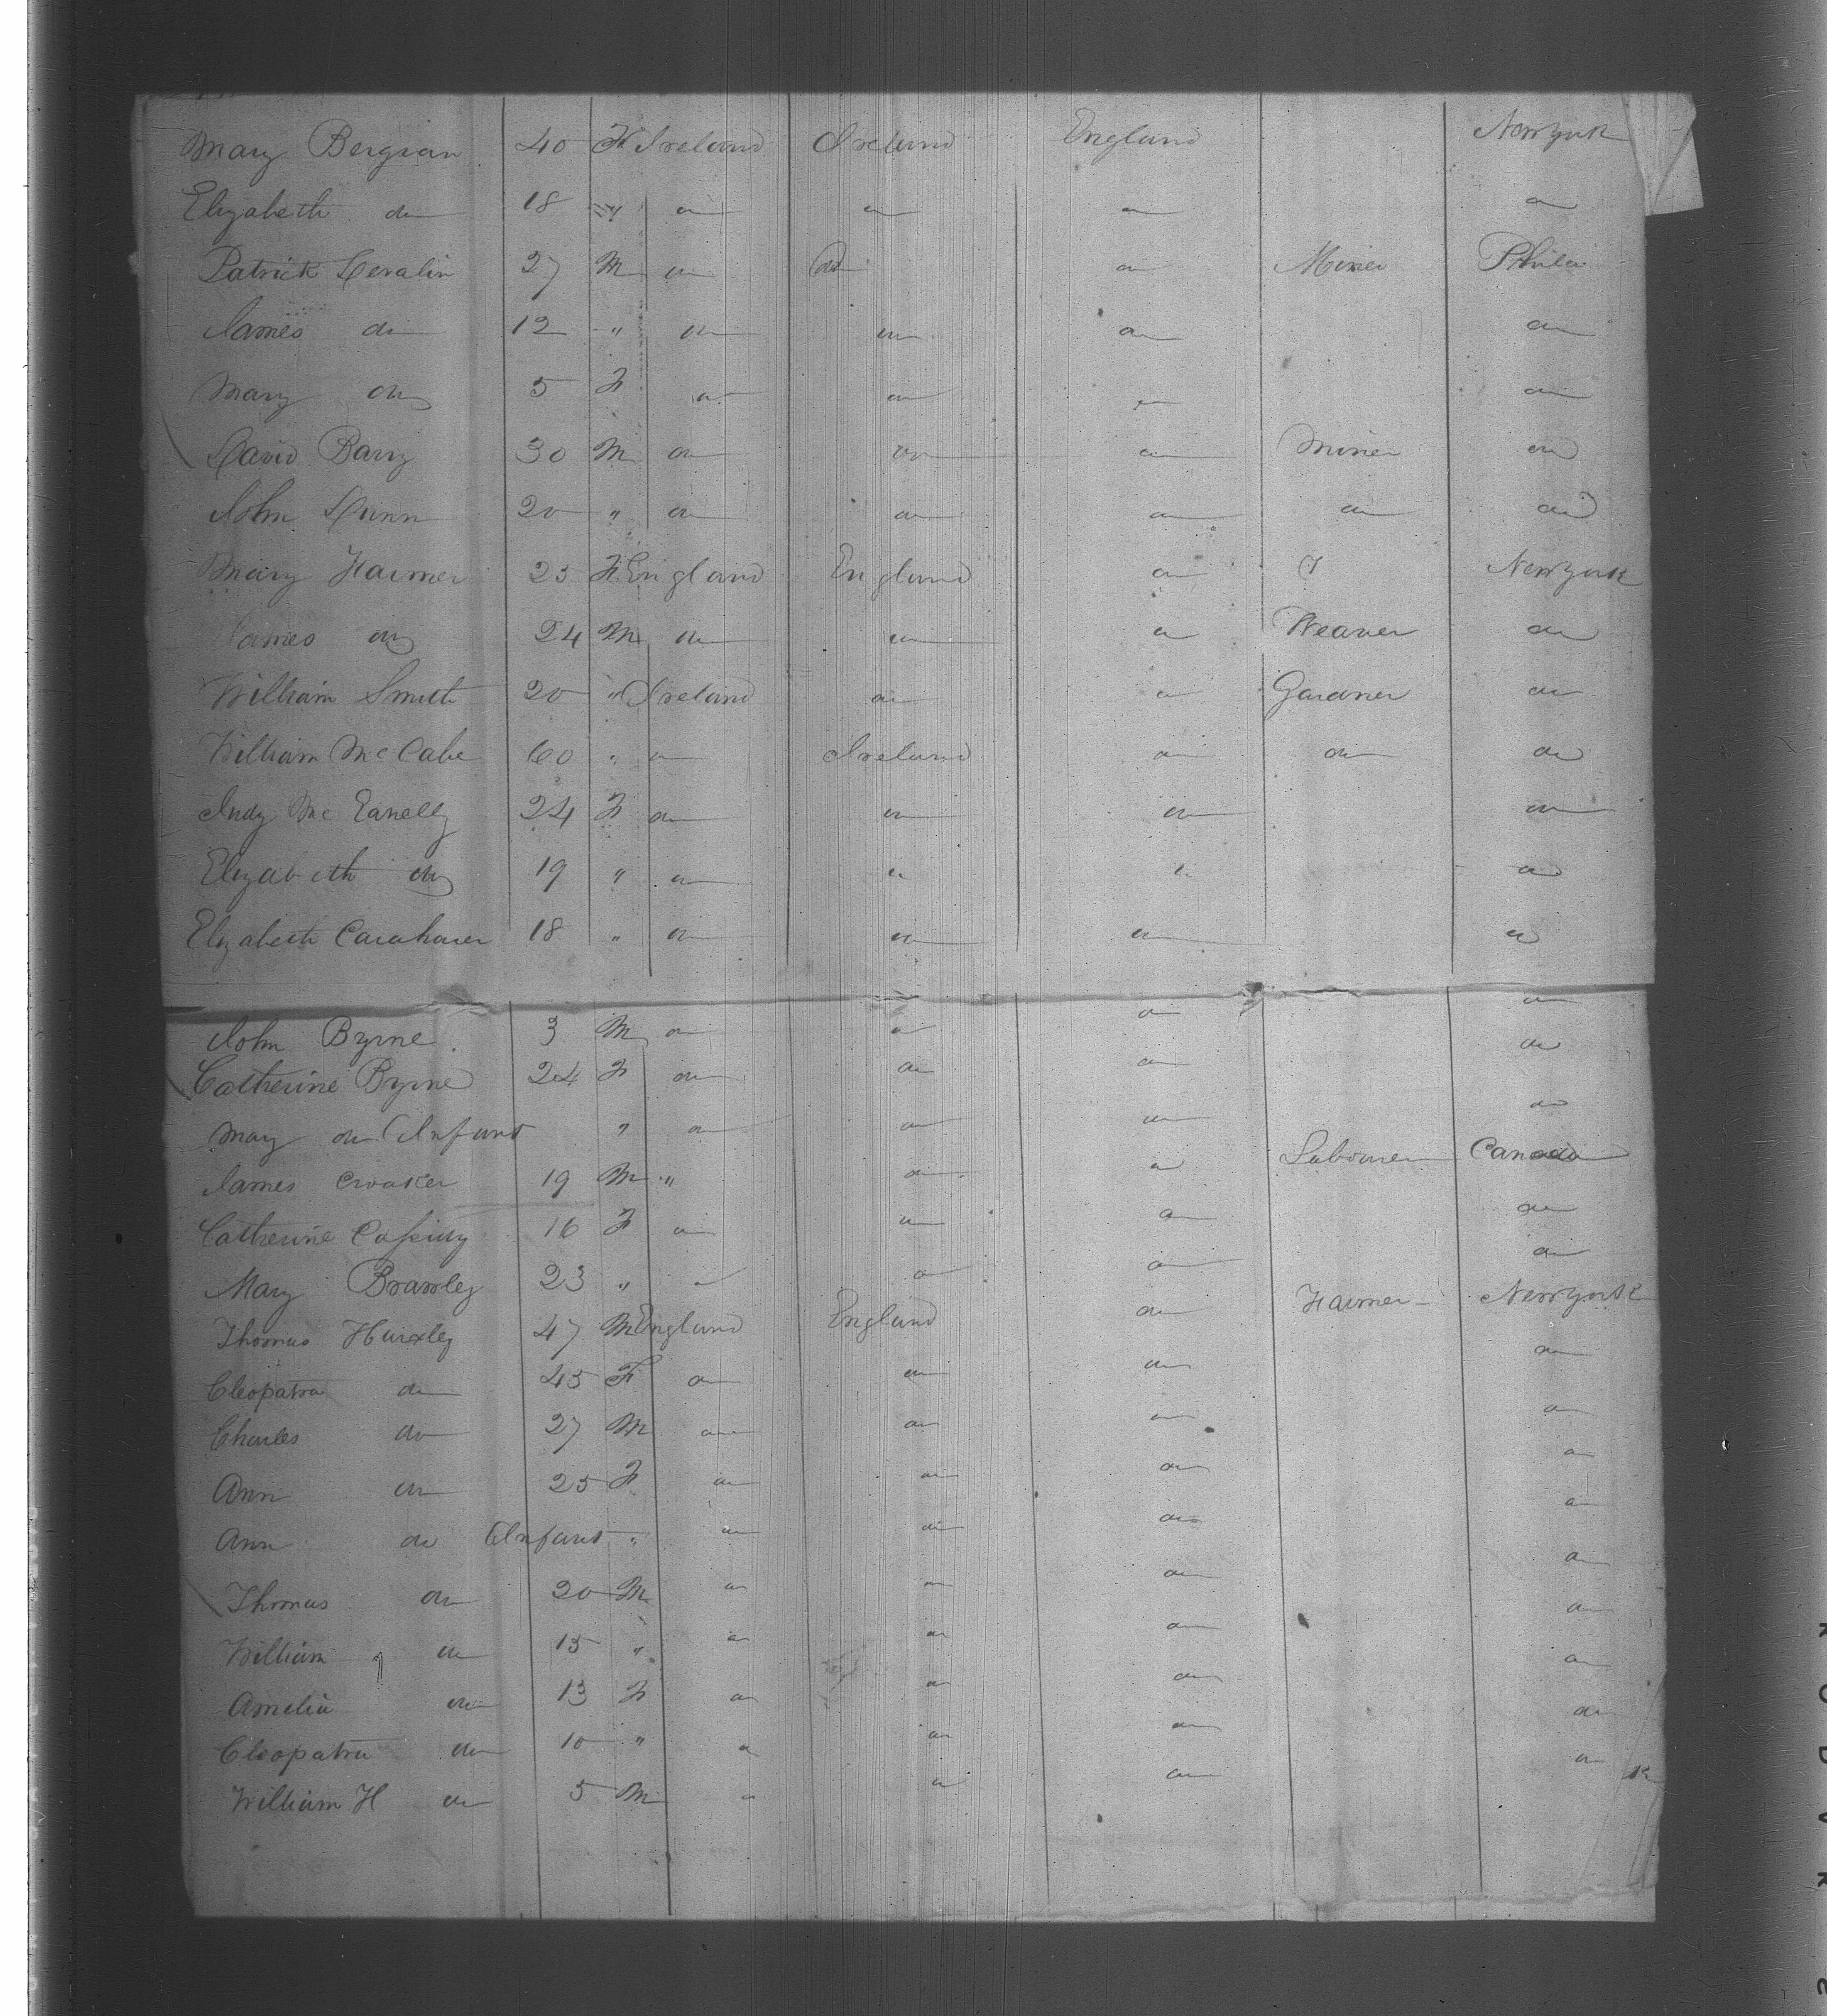 Mary Bergian 40 F Ireland Ireland England New York
Elizabeth do 18 " do do do do
Patrick Devalin 27 M do do do Miner Phila
James do 12 " do do do do
Mary do 5 F do do do do
David Barry 30 M do do do Miner do
John Dunn 20 " do do do do do
Mary Harmer 23 F England England do New York
James do 24 M do do do Weaver do
William Smith 20 " Ireland do do Gardner do
William McCabe 60 " do Ireland do do do
Judy Mc Eanelly 24 F do do do do
Elizabeth do 19 " do do do do
Elizabeth Carahaver 18 " do do do do
John Byrne 3 M do do do do
Catherine Byrne 24 F do do do do
May do Infant " do do do do
James Croaker 19 M " do do Labourer Canada
Catherine Cassidy 16 F do do do do
Mary Brawley 23 " do do do do
Thomas Huxley 47 M England England do Farmer New York
Cleopatra do 45 F do do do do
Charles do 27 M do do do do
Ann do 25 F do do do do
Ann do Infant " do do do do
Thomas do 20 M do do do do
William do 15 " do do do do
Amelia do 13 F do do do do
Cleopatra do 10 " do do do do
William H do 5 M do do do do